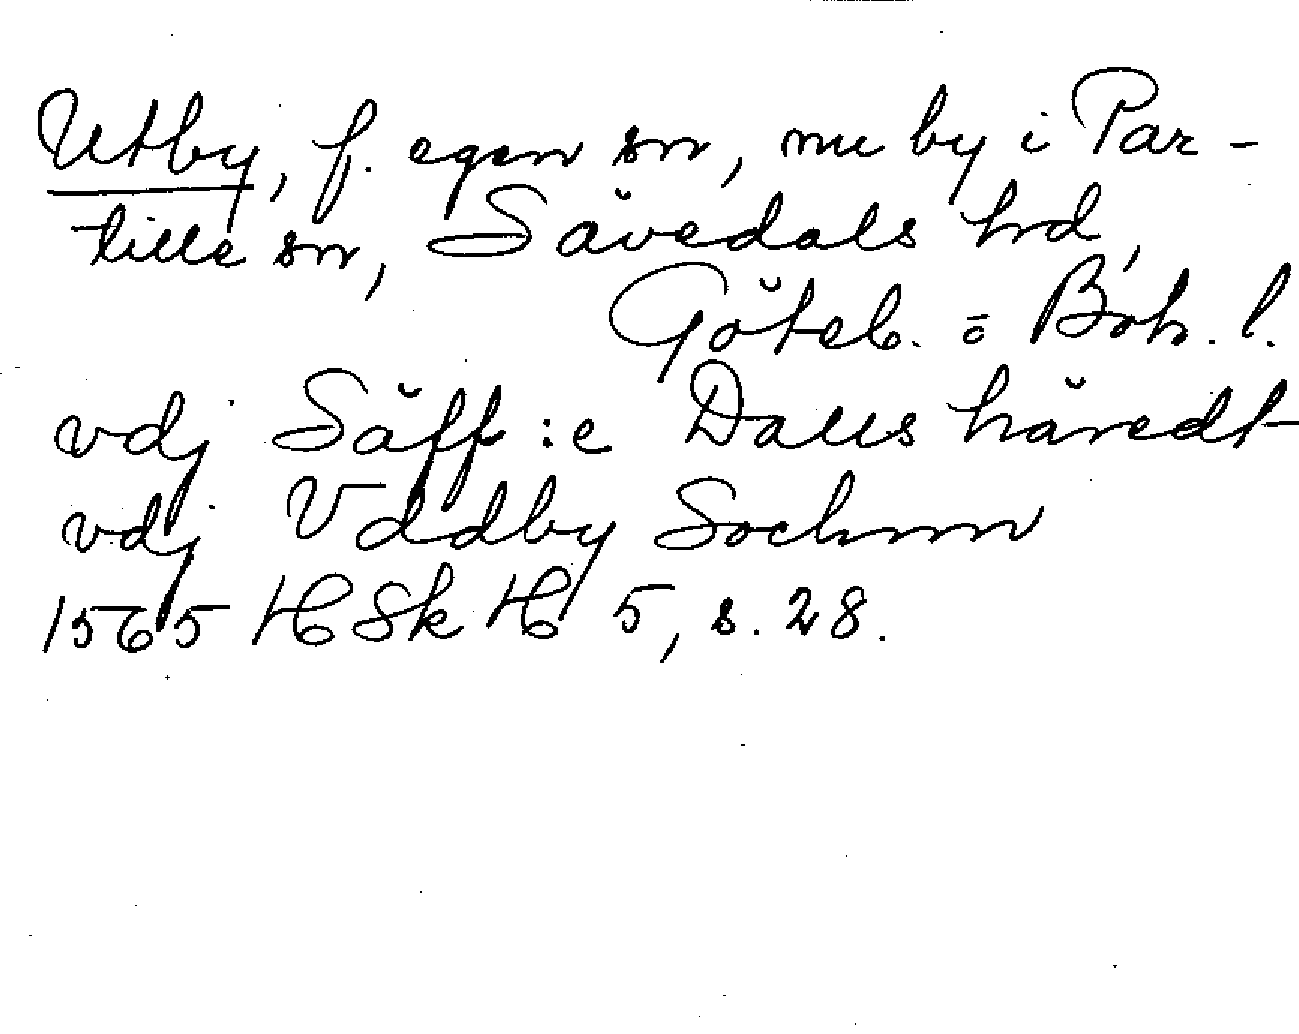 Utby, f. egen sn, nu by i Par-
tille sn, Sävedals hrd,
Göteb. o Boh. l.
vdj Säff:e Dalls häredt
vdj Vddby Sochnn
1565 HSkH 5, s. 28.